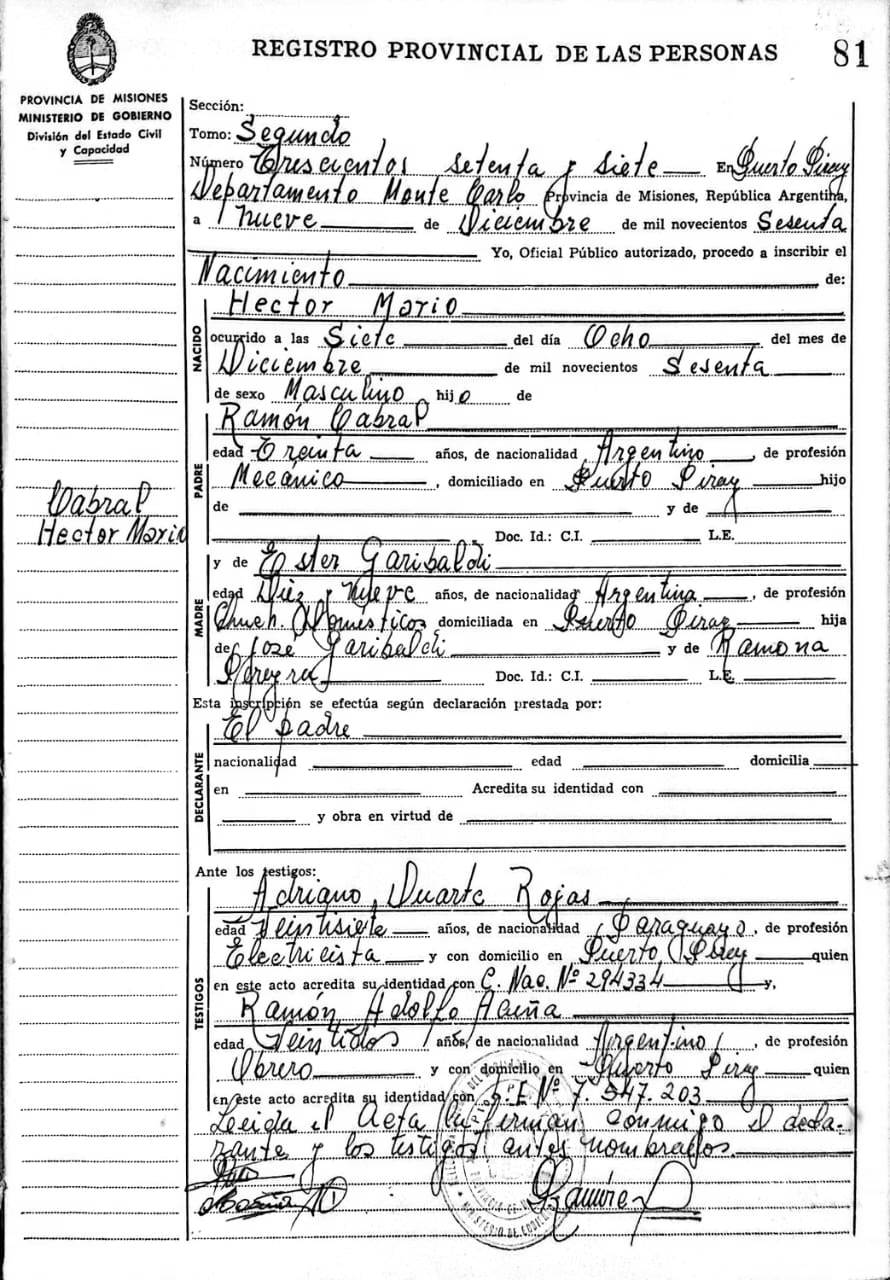 REGISTRO PROVINCIAL DE LAS PERSONAS
81
PROVINCIA DE MISIONES
MINISTERIO DE GOBIERNO
División del Estado Civil
y Capacidad
Cabral
Hector Mario
Sección:
Tomo: Segundo
Número Trescientos setenta y siete En Puerto Piray
Departamento Monte Carlo Provincia de Misiones, República Argentina,
a nueve de Diciembre de mil novecientos Sesenta
Yo, Oficial Público autorizado, procedo a inscribir el
Nacimiento de:
NACIDO
Hector Mario
ocurrido a las Siete del día Ocho del mes de
Diciembre de mil novecientos Sesenta
de sexo Masculino hijo de
PADRE
Ramón Cabral
edad Treinta años, de nacionalidad Argentino, de profesión
Mecánico, domiciliado en Puerto Piray hijo
de y de
Doc. Id.: C.I. L.E.
MADRE
y de Ester Garibaldi
edad Diez y nueve años, de nacionalidad Argentina, de profesión
Domésticos domiciliada en Puerto Piray hija
de José Garibaldi y de Ramona
Pereyra Doc. Id.: C.I. L.E.
Esta inscripción se efectúa según declaración prestada por:
DECLARANTE
El padre
nacionalidad edad domicilia
en Acredita su identidad con
y obra en virtud de
Ante los testigos:
TESTIGOS
Adriano Duarte Rojas
edad Veintisiete años, de nacionalidad Paraguayo, de profesión
Electricista y con domicilio en Puerto Piray quien
en este acto acredita su identidad con C. Nac. Nº 294334 y,
Ramón Adolfo Acuña
edad Veintidos años, de nacionalidad Argentino, de profesión
Obrero y con domicilio en Puerto Piray quien
en este acto acredita su identidad con L.E Nº 7.547.203
Leida el Acta la firman conmigo el decla-
rante y los testigos antes nombrados.
Ramirez